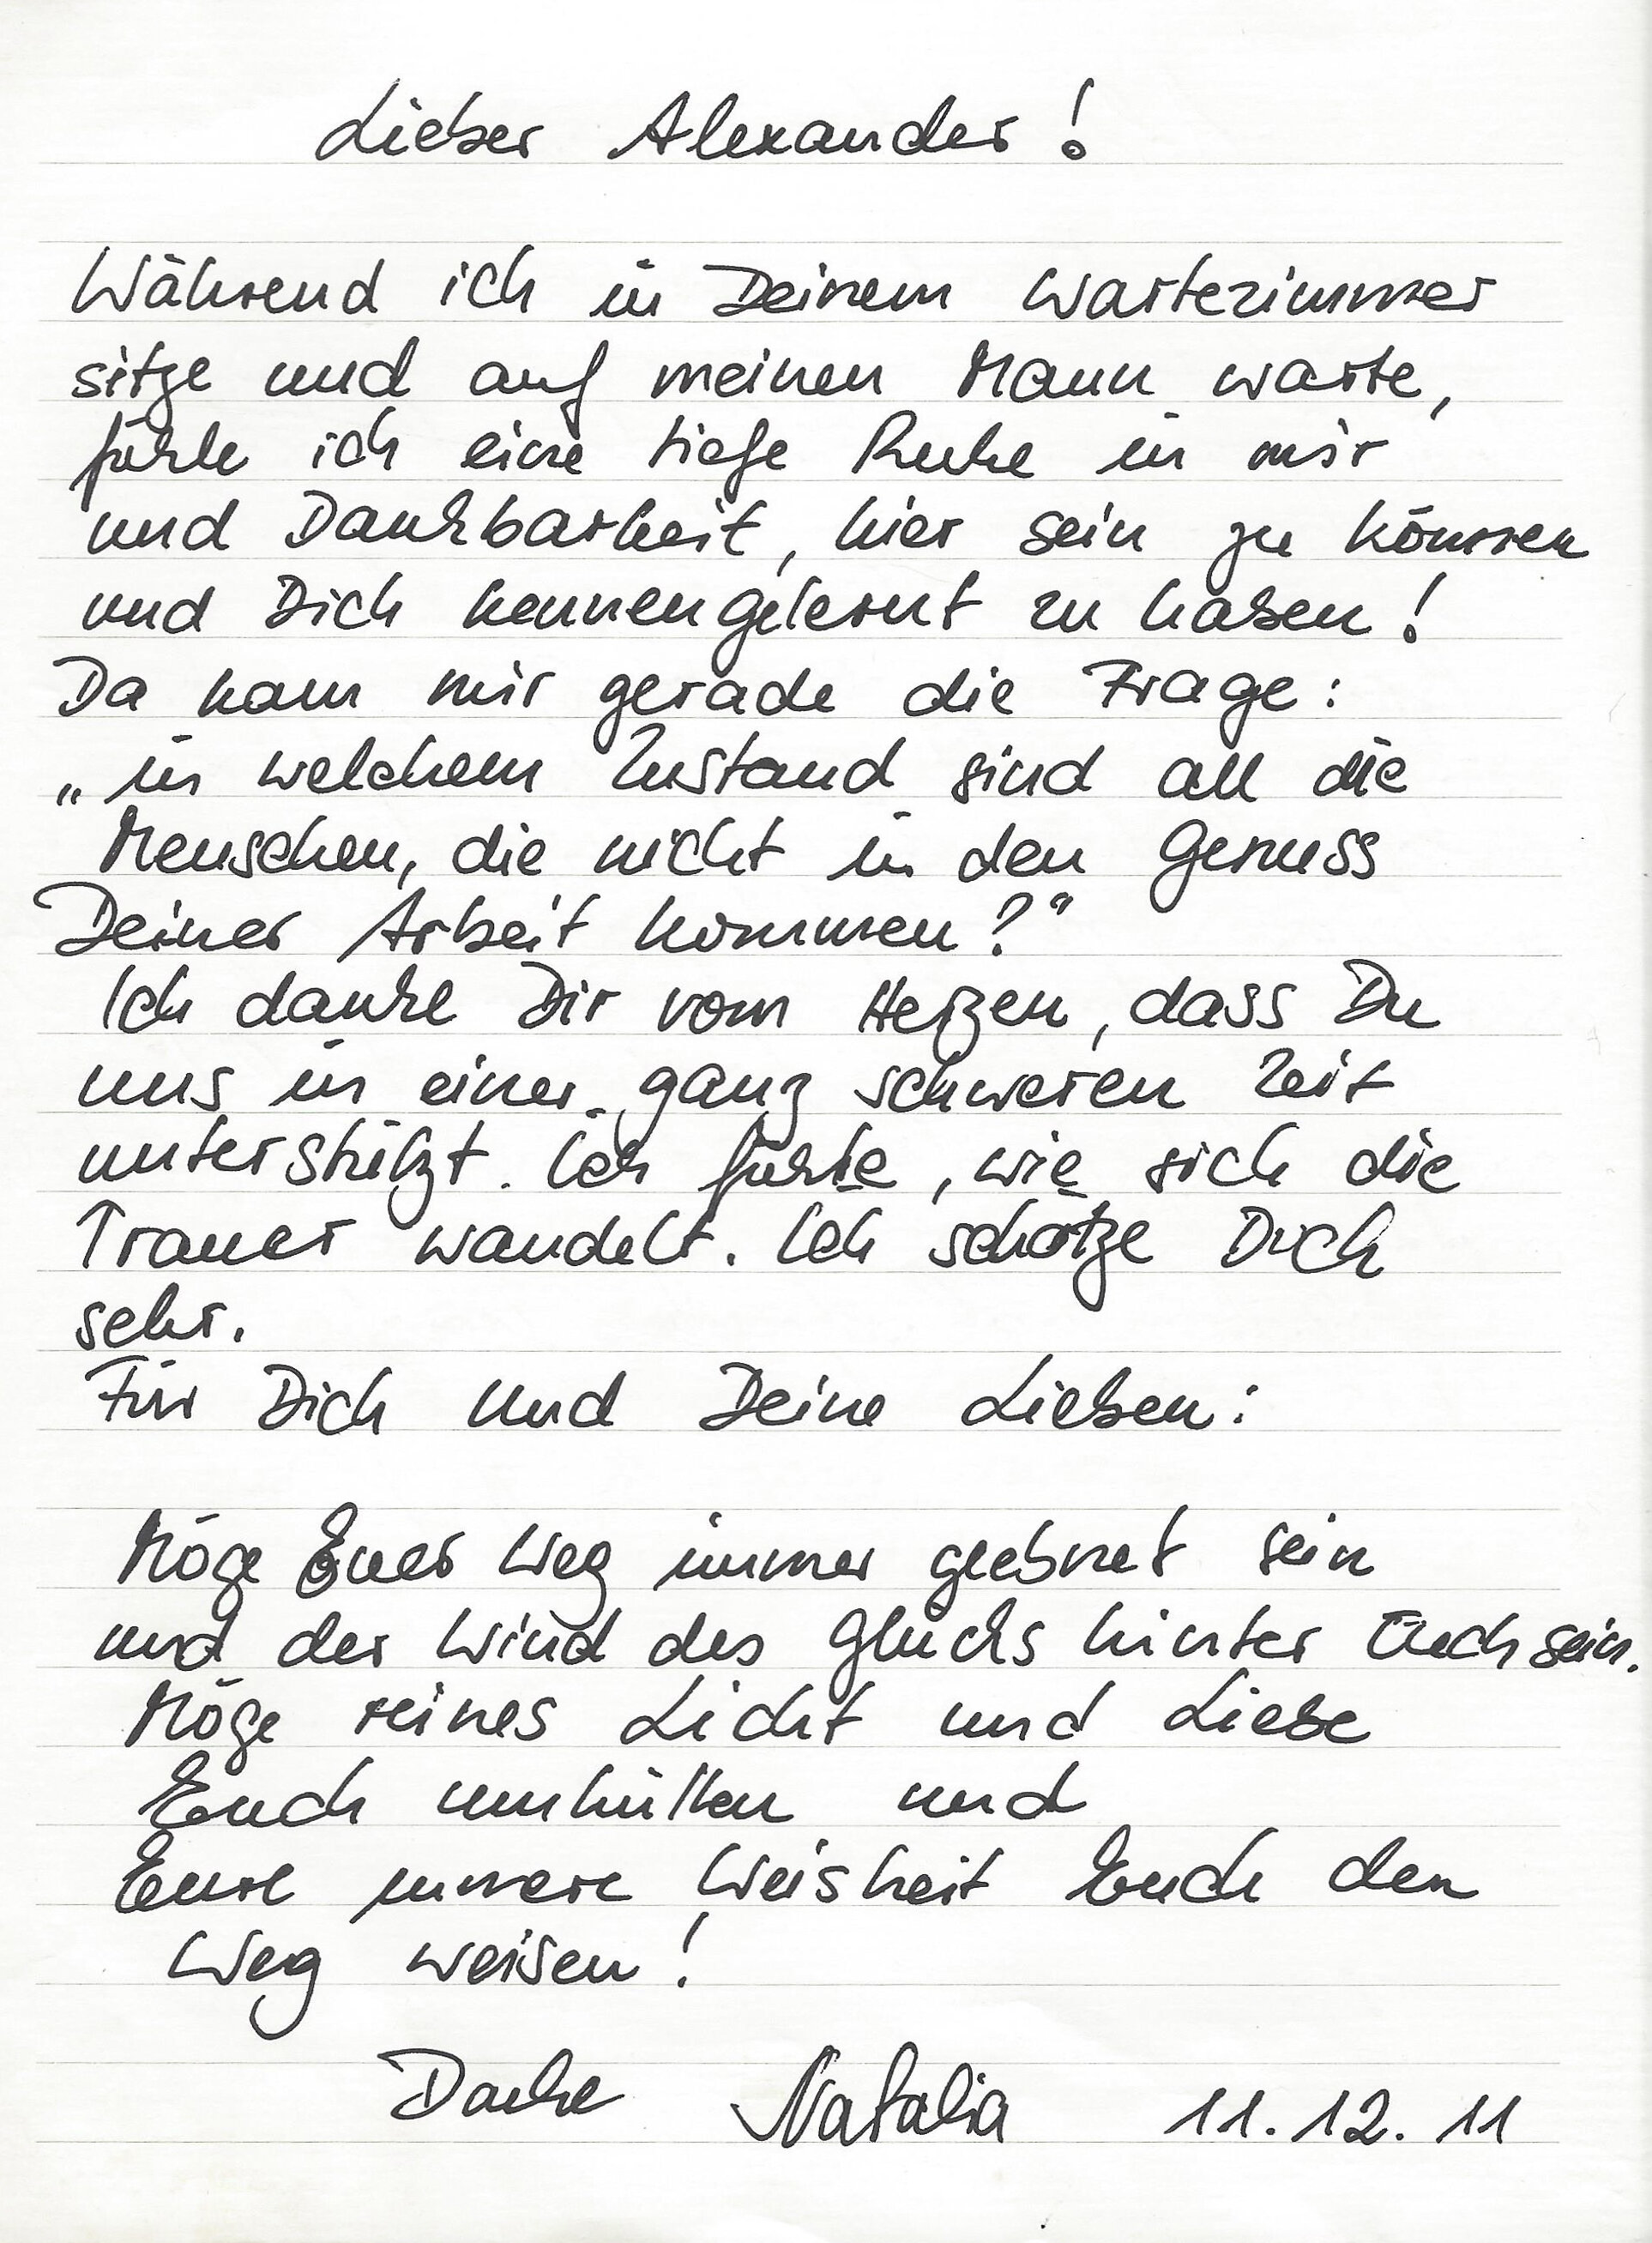 Lieber Alexander!
Während ich in Deinem Wartezimmer
sitze und auf meinen Mann warte,
fühle ich eine tiefe Ruhe in mir
und Dankbarkeit, hier sein zu können
und Dich kennengelernt zu haben!
Da kam mir gerade die Frage:
„in welchem Zustand sind all die
Menschen, die nicht in den Genuss
Deiner Arbeit kommen?“
Ich danke Dir vom Herzen, dass Du
uns in einer ganz schweren Zeit
unterstützt. Ich fühle, wie sich die
Trauer wandelt. Ich schätze Dich
sehr.
Für Dich und Deine Lieben:
Möge Euer Weg immer geebnet sein
und der Wind des Glücks hinter Euch sein.
Möge reines Licht und Liebe
Euch umhüllen und
Eure innere Weisheit Euch den
Weg weisen!
Danke Natalia 11.12.11